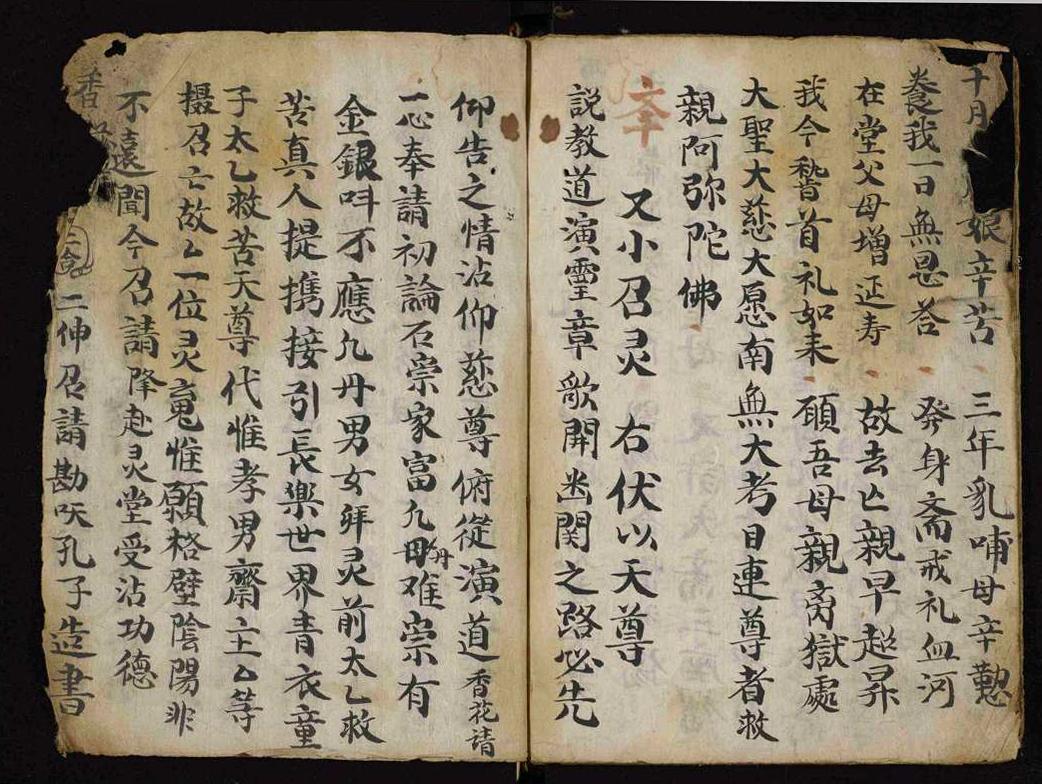 十月娘辛苦 三年乳哺母辛懃
養我一日無恩答 發身斋戒礼血河
在堂父母增延寿 故去亡親早超昇
我今稽首礼如来 願吾母親离獄處
大聖大慈大愿南無大考目連尊者救
親阿弥陀佛
又小召灵 右伏以天尊
説教道演靈章歌開幽関之路必先
仰告之情沾仰慈尊俯從演道香花請
一心奉請初論石崇家富九毋难崇有
金銀呌不應九丹男女拜灵前太乙救
苦真人提携接引長樂世界青衣童
子太乙救苦天尊代惟孝男齋主厶等
摄召亡故厶一位灵魂惟願格壁陰陽非
不遠聞今召請降赴灵堂受沾功德
香 二伸召請勘呅孔子造書